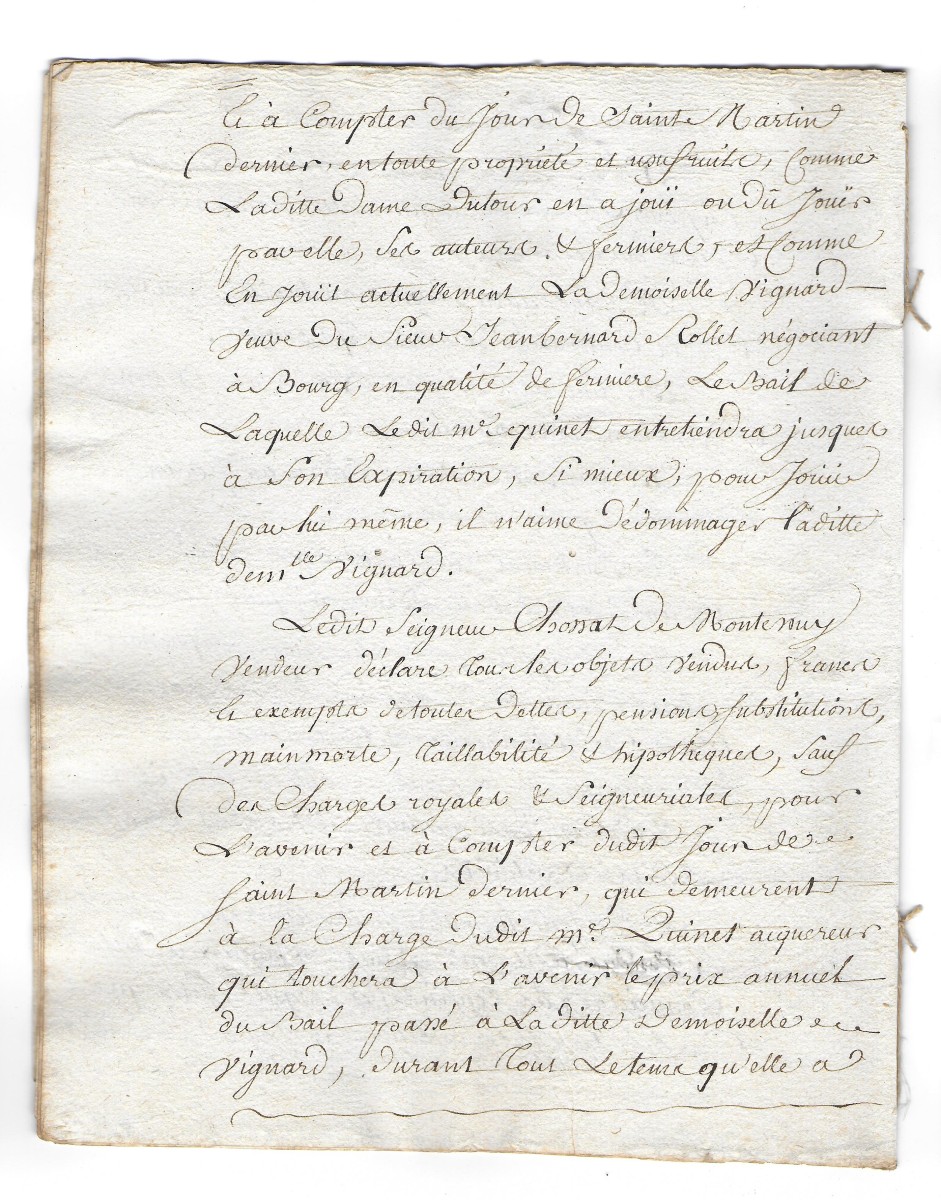 Et à Compter du Jour de Sainte Martin
dernier, en toute propriété et usufruits, Comme
Laditte Dame Dutour en a joüi ou dû Joüir
par elle, ses auteurs & fermiers, et Comme
En Joüit actuellement La demoiselle Vignard
Veuve du Sieur Jean bernard Rollet négociant
à Bourg, en qualité de fermiere, Le Bail de
Laquelle Ledit mr. quinet entretiendra jusques
à Son Expiration, Si mieux, pour Joüir
par lui même, il n'aime Dédommager laditte
demlle Vignard.
Ledit Seigneur Chossat de Montemuy
Vendeur déclare tous les objets Vendus, francs
Et exempts de toutes Dettes, pensions, Substitutions,
mainmorte, taillabilité & hipotheques, Sauf
des Charges royales & Seigneuriales, pour
L'avenir et à Compter dudit Jour de
Saint Martin dernier, qui demeurent
à la Charge dudit mr. Quinet aiquereur
qui touchera à L'avenir le prix annuel
du Bail passé à Laditte Demoiselle
Vignard, durant tout Le tems qu'elle a